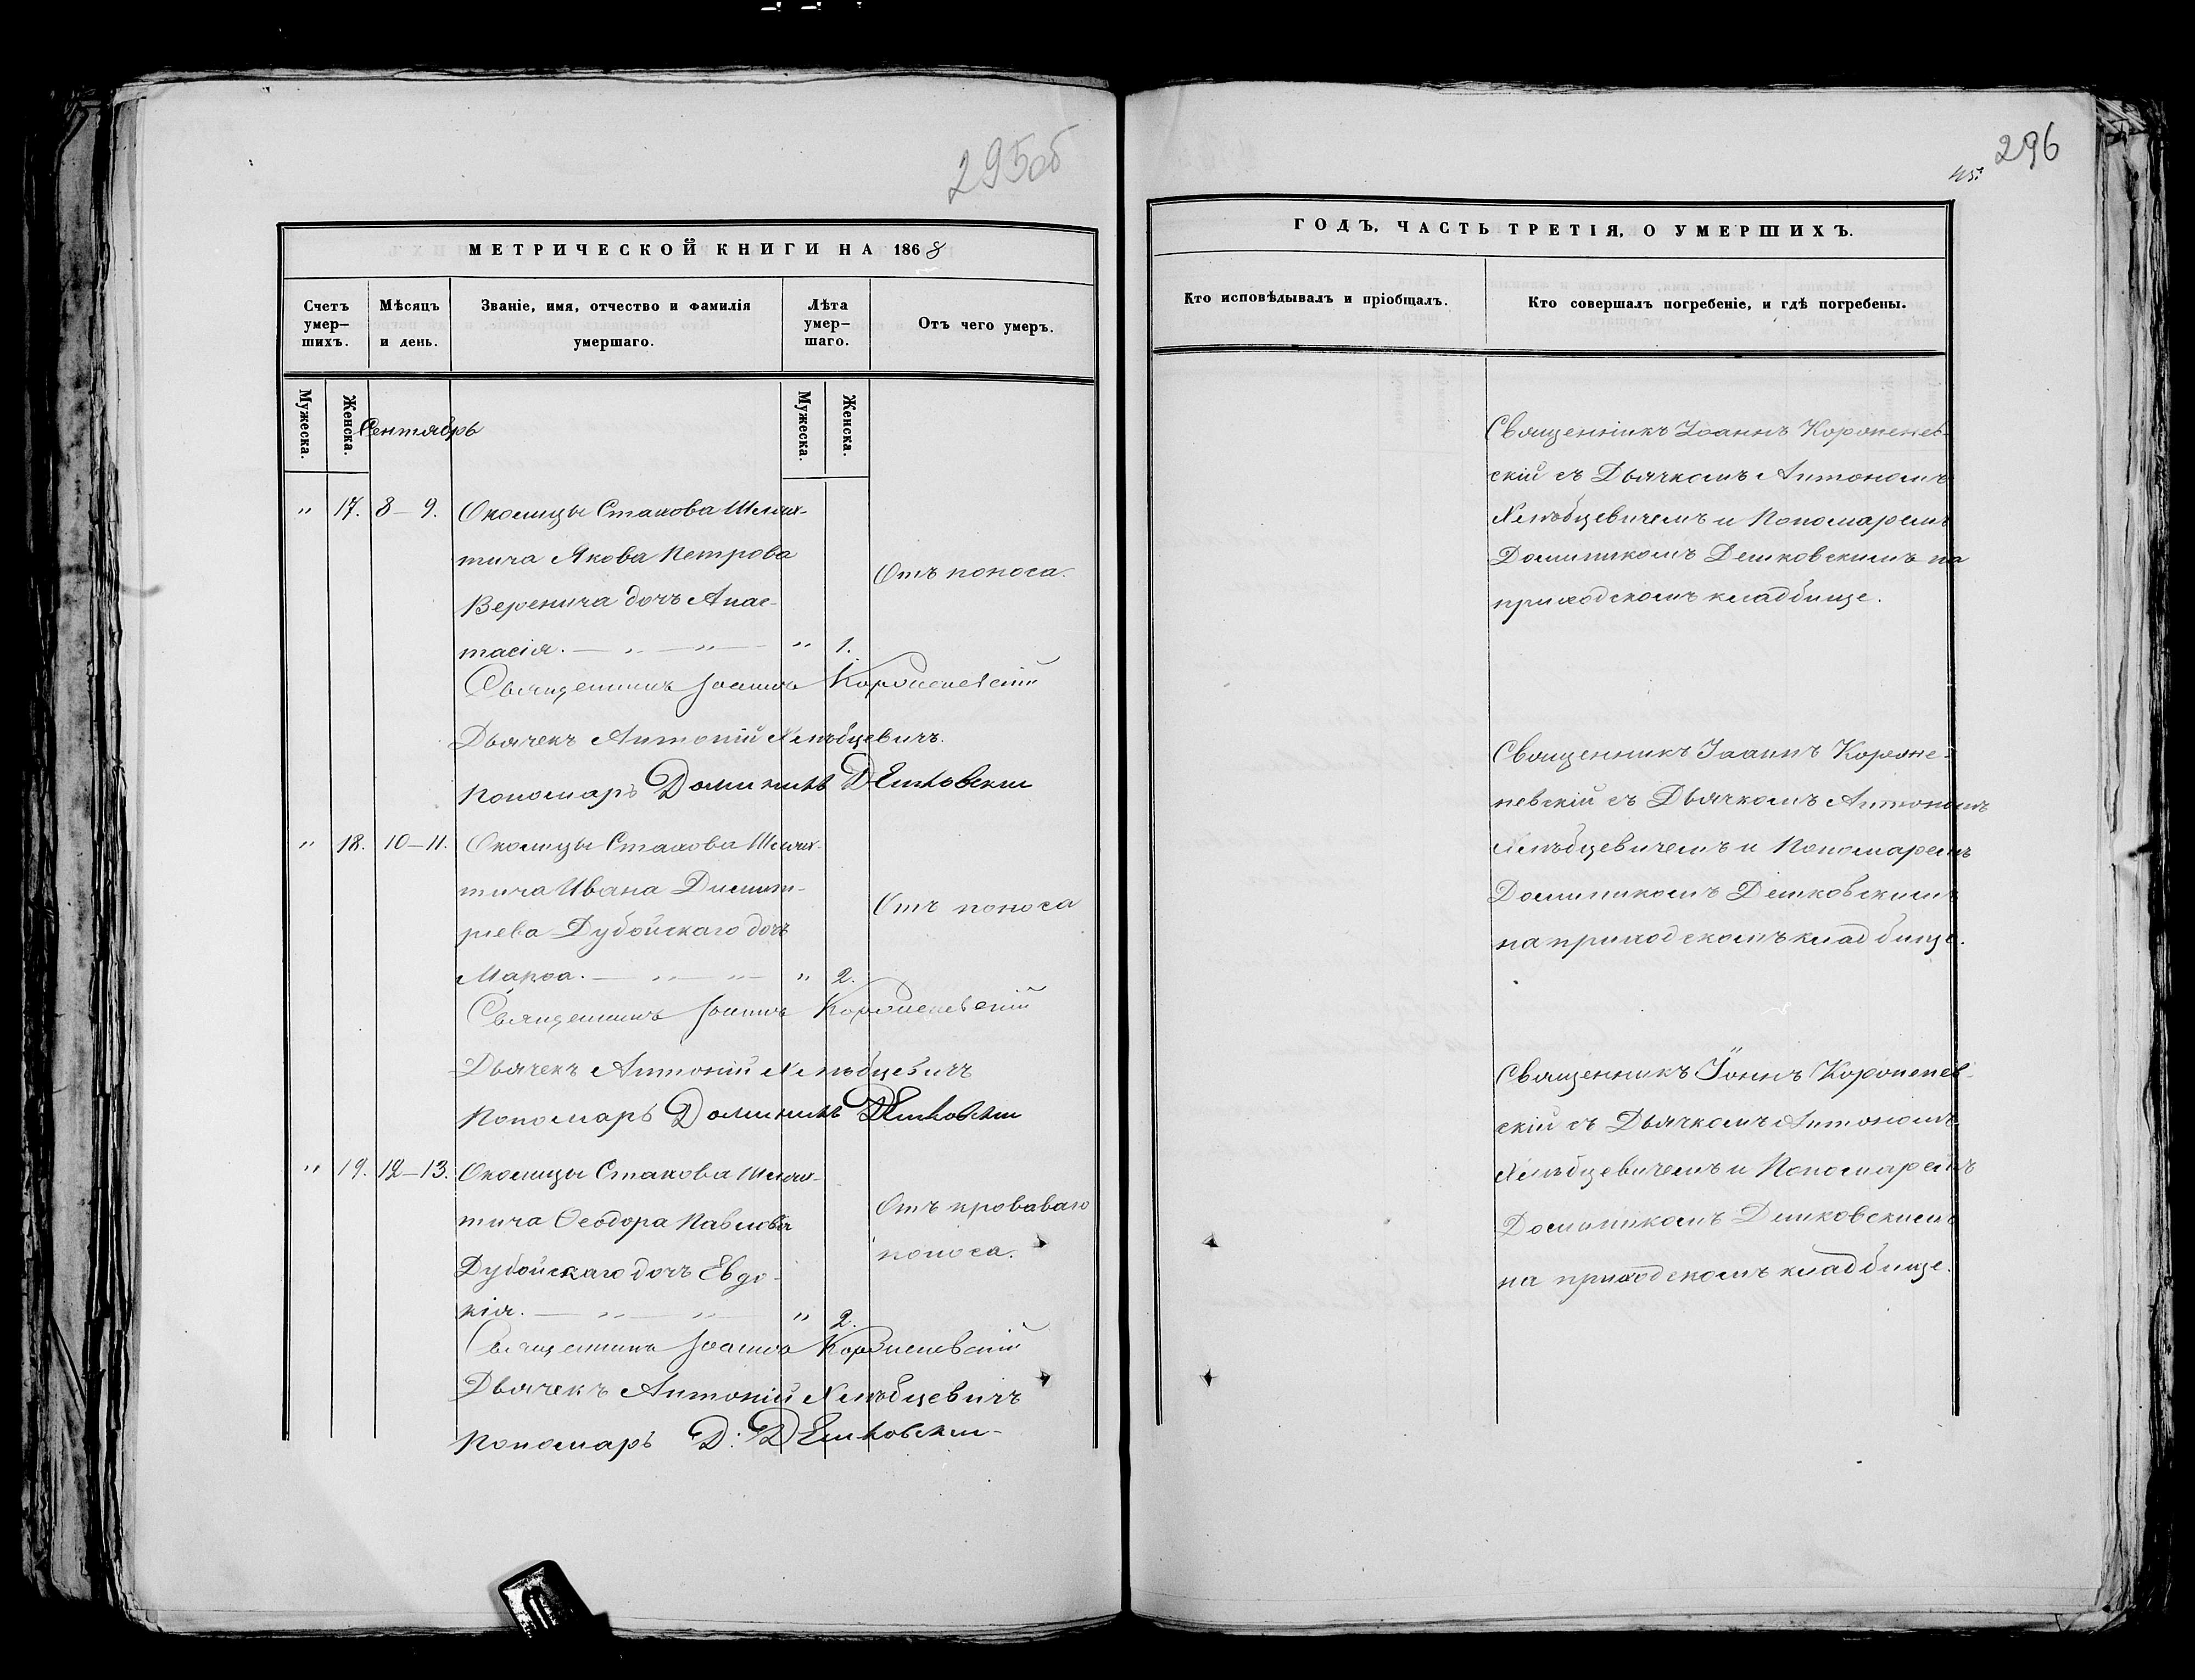 295об
МЕТРИЧЕСКОЙ КНИГИ НА 1868
Счетъ умер-шихъ.
Мѣсяцъ и день.
Званіе, имя, отчество и фамилія умершаго.
Лѣта умер-шаго.
Отъ чего умеръ.
Мужеска.
Женска.
Мужеска.
Женска.
Сентябрь
" 17. 8-9. Околицы Стахова Шлях-
тича Якова Петрова
Отъ поноса.
Веренича дочь Анас-
тасія. — " — " 1.
Священникъ Іоаннъ Короненевскій
Дьячекъ Антоній Хлѣбцевичъ.
Пономарь Доминикъ Демковскій
" 18. 10-11. Околицы Стахова Шлях-
тича Ивана Димит-
Отъ поноса
ріева Дубойскаго дочь
Марѳа. — " — " — " 2.
Священникъ Іоаннъ Короненевскій
Дьячекъ Антоній Хлѣбцевичъ
Пономарь Доминикъ Демковскій
" 19. 12-13. Околицы Стахова Шлях-
тича Ѳеодора Павлова
Отъ кроваваго
поноса.
Дубойскаго дочь Евдо-
кія. — " — " — " 2.
Священникъ Іоаннъ Короненевскій
Дьячекъ Антоній Хлѣбцевичъ
Пономарь Д: Демковскій
296
ГОДЪ, ЧАСТЬ ТРЕТІЯ, О УМЕРШИХЪ.
Кто исповѣдывалъ и пріобщалъ.
Кто совершалъ погребеніе, и гдѣ погребены.
Священникъ Іоаннъ Короненев-
скій съ Дьячкомъ Антономъ
Хлѣбцевичемъ и Пономаремъ
Доминикомъ Демковскимъ на
приходскомъ кладбище.
Священникъ Іоаннъ Короне-
невскій съ Дьячкомъ Антономъ
Хлѣбцевичемъ и Пономаремъ
Доминикомъ Демковскимъ
на приходскомъ кладбище.
Священникъ Іоннъ Короненев-
скій съ Дьячкомъ Антономъ
Хлѣбцевичемъ и Пономаремъ
Доминикомъ Демковскимъ
на приходскомъ кладбище.